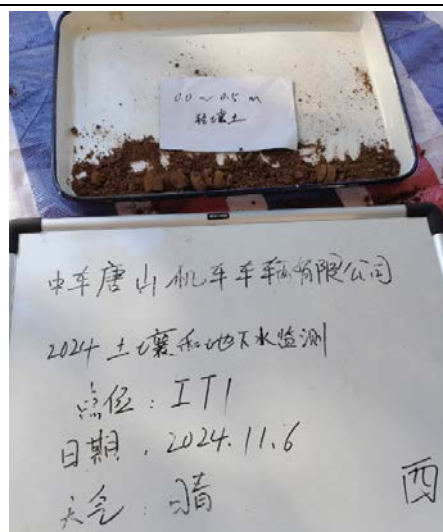 0.0～0.5m
轻壤土
中车唐山机车车辆有限公司
2024土壤和地下水监测
点位：IT1
日期：2024.11.6
天气：晴
西